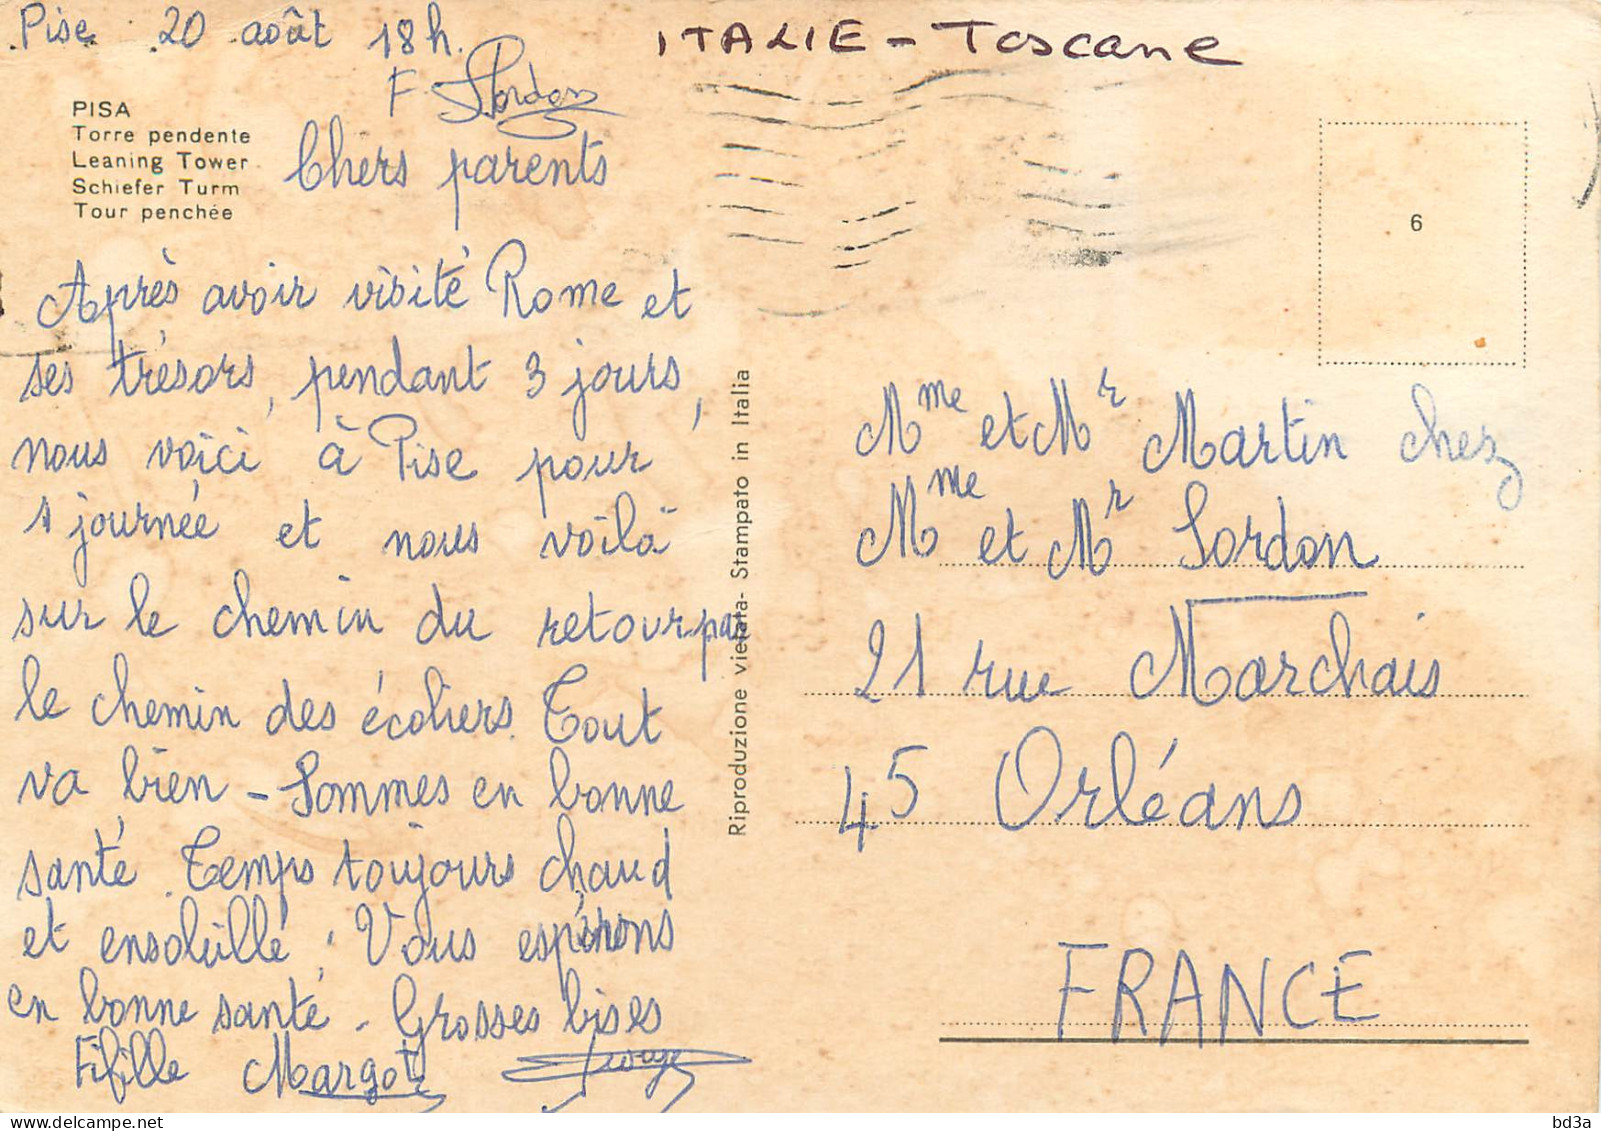 Pise 20 août 18h.
ITALIE - Toscane
F Sordon
PISA
Torre pendente
Leaning Tower
Schiefer Turm
Tour penchée
Chers parents
Après avoir visité Rome et
ses trésors, pendant 3 jours,
nous voici à Pise pour
1 journée et nous voilà
sur le chemin du retour par
le chemin des écoliers. Tout
va bien - Sommes en bonne
santé. Temps toujours chaud
et ensoleillé. Vous espérons
en bonne santé - Grosses bises
Fifille Margot
Riproduzione vietata - Stampato in Italia
6
Mme et Mr Martin chez
Mme et Mr Sordon
21 rue Marchais
45 Orléans
FRANCE
delcampe.net
bd3a